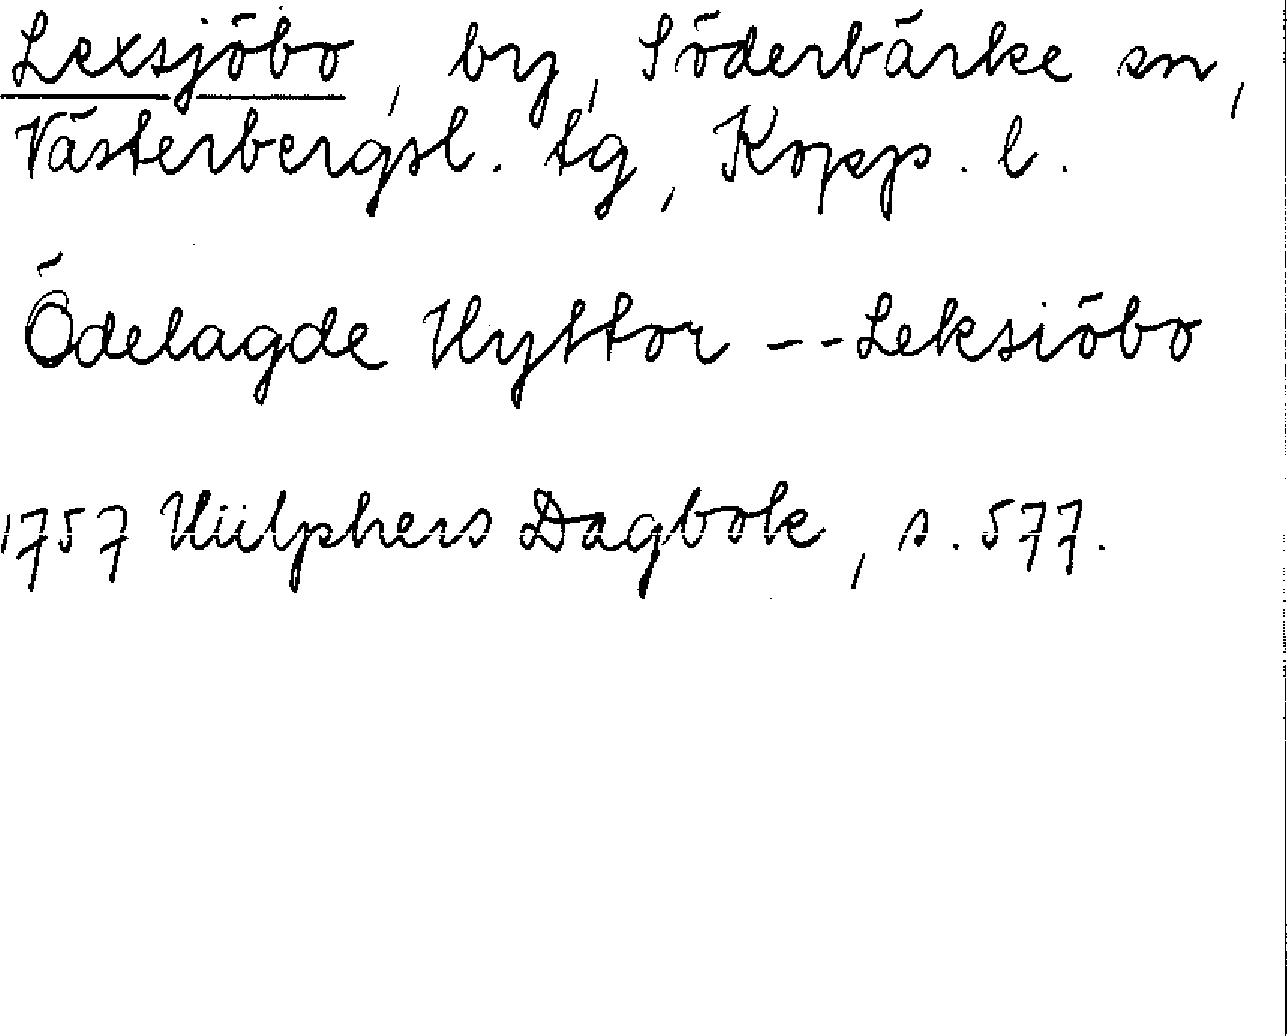 Lexsjöbo, by, Söderbärke sn,
Västerbergsl. tg, Kopp. l.
Ödelagde Hyttor -- Leksiöbo
1757 Hülphers Dagbok, s. 577.